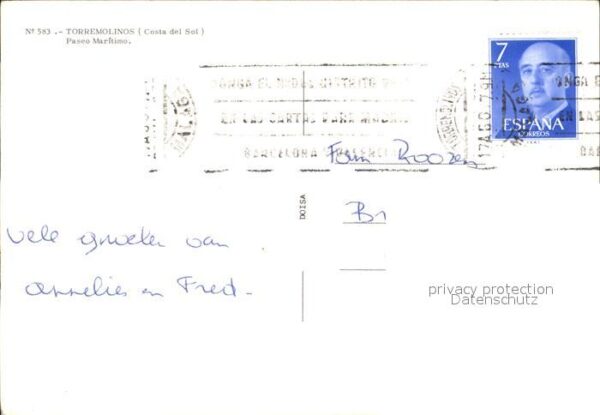 Nº 583 .- TORREMOLINOS ( Costa del Sol )
Paseo Marítimo.
7
PTAS
ESPAÑA
CORREOS
PONGA EL Nº DEL DISTRITO POSTAL
EN LAS CARTAS PARA MADRID
BARCELONA Y VALENCIA
17 AGO 79
MALAGA
Fam Roozen
DOISA
Vele groeten van
annelies en Fred.
privacy protection
Datenschutz